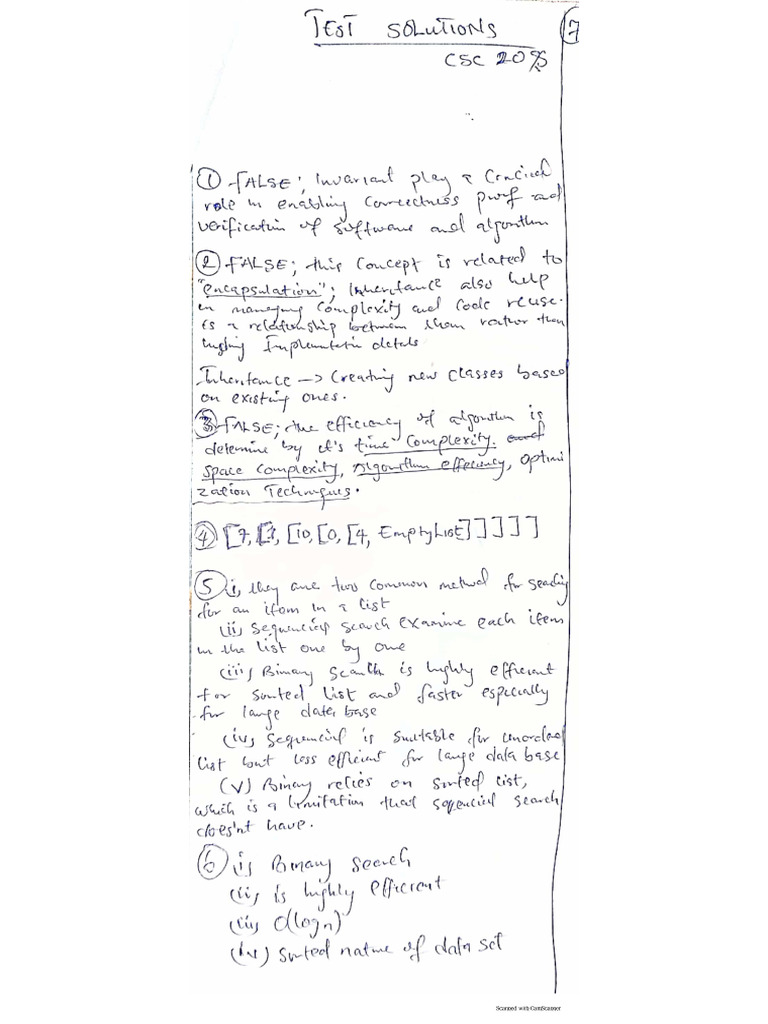 TEST SOLUTIONS
7
CSC 208
① FALSE; Invariant play a Crucial
role in enabling Correctness proof and
verification of software and algorithm
② FALSE; this Concept is related to
"encapsulation"; Inheritance also help
in managing Complexity and Code reuse.
is a relationship between them rather than
Implementation details
Inheritance -> Creating new classes based
on existing ones.
③ FALSE; the efficiency of algorithm is
determine by it's time Complexity.
space Complexity, Algorithm efficiency, Optimi
zation Techniques.
④ [7, [3, [10, [0, [4, EmptyList]]]]]
⑤ i, they are two common method for
for an item in a list
(ii) Sequencial search examine each item
in the list one by one
(iii) Binary is highly efficient
for sorted list and faster especially
for large data base
(iv) Sequencial is suitable for unordered
list but less efficient for large data base
(v) Binary relies on sorted list,
which is a limitation that sequencial search
does'nt have.
⑥ i, Binary search
(ii) is highly efficient
(iii) O(log n)
(iv) Sorted nature of data set
Scanned with CamScanner